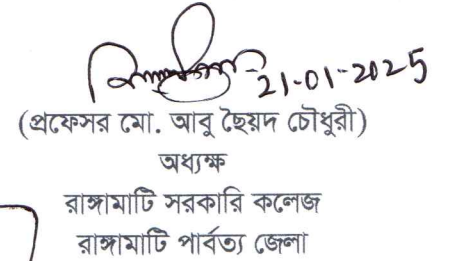 21-01-2025
(প্রফেসর মো. আবু ছৈয়দ চৌধুরী)
অধ্যক্ষ
রাঙ্গামাটি সরকারি কলেজ
রাঙ্গামাটি পার্বত্য জেলা